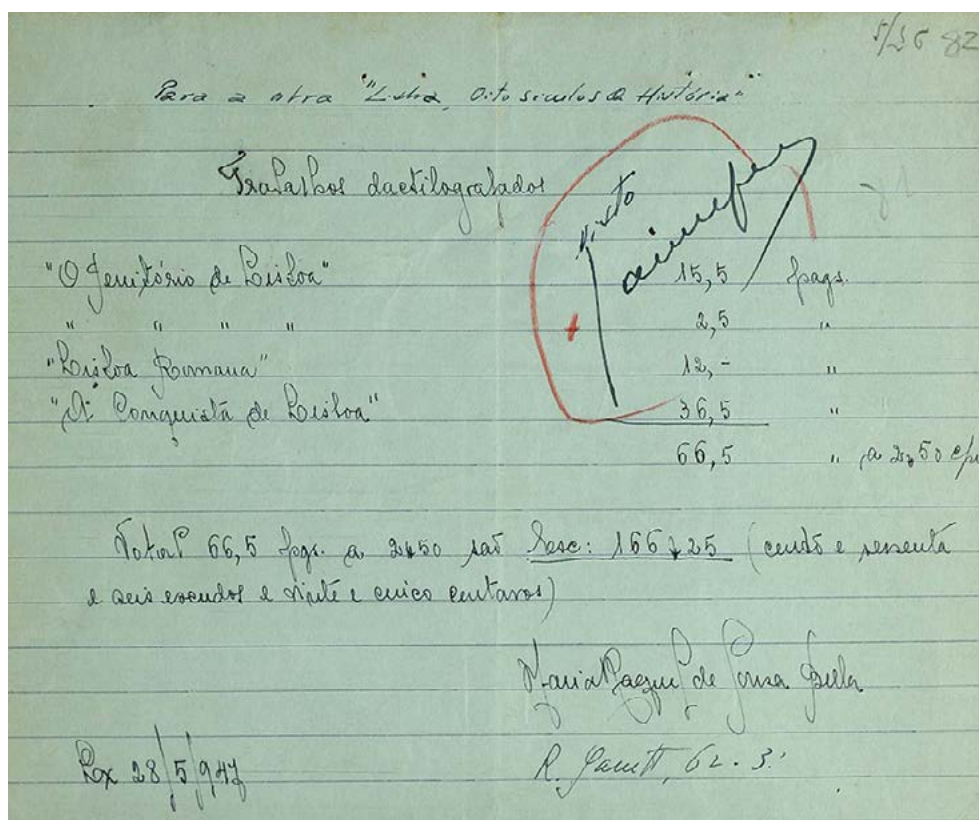 Para a obra "Lisboa, Oito séculos de História"
Trabalhos dactilografados
Visto
"O Território de Lisboa" 15,5 pags.
" " " " 2,5 "
"Lisboa Romana" 12,- "
"A Conquista de Lisboa" 36,5 "
66,5 " a 2$50 c/
Total 66,5 pags. a 2$50 são Esc: 166$25 (cento e sessenta
e seis escudos e vinte e cinco centavos)
Maria Raquel de Sousa
R. Garrett, 62. 3.º
Lx 28/5/947